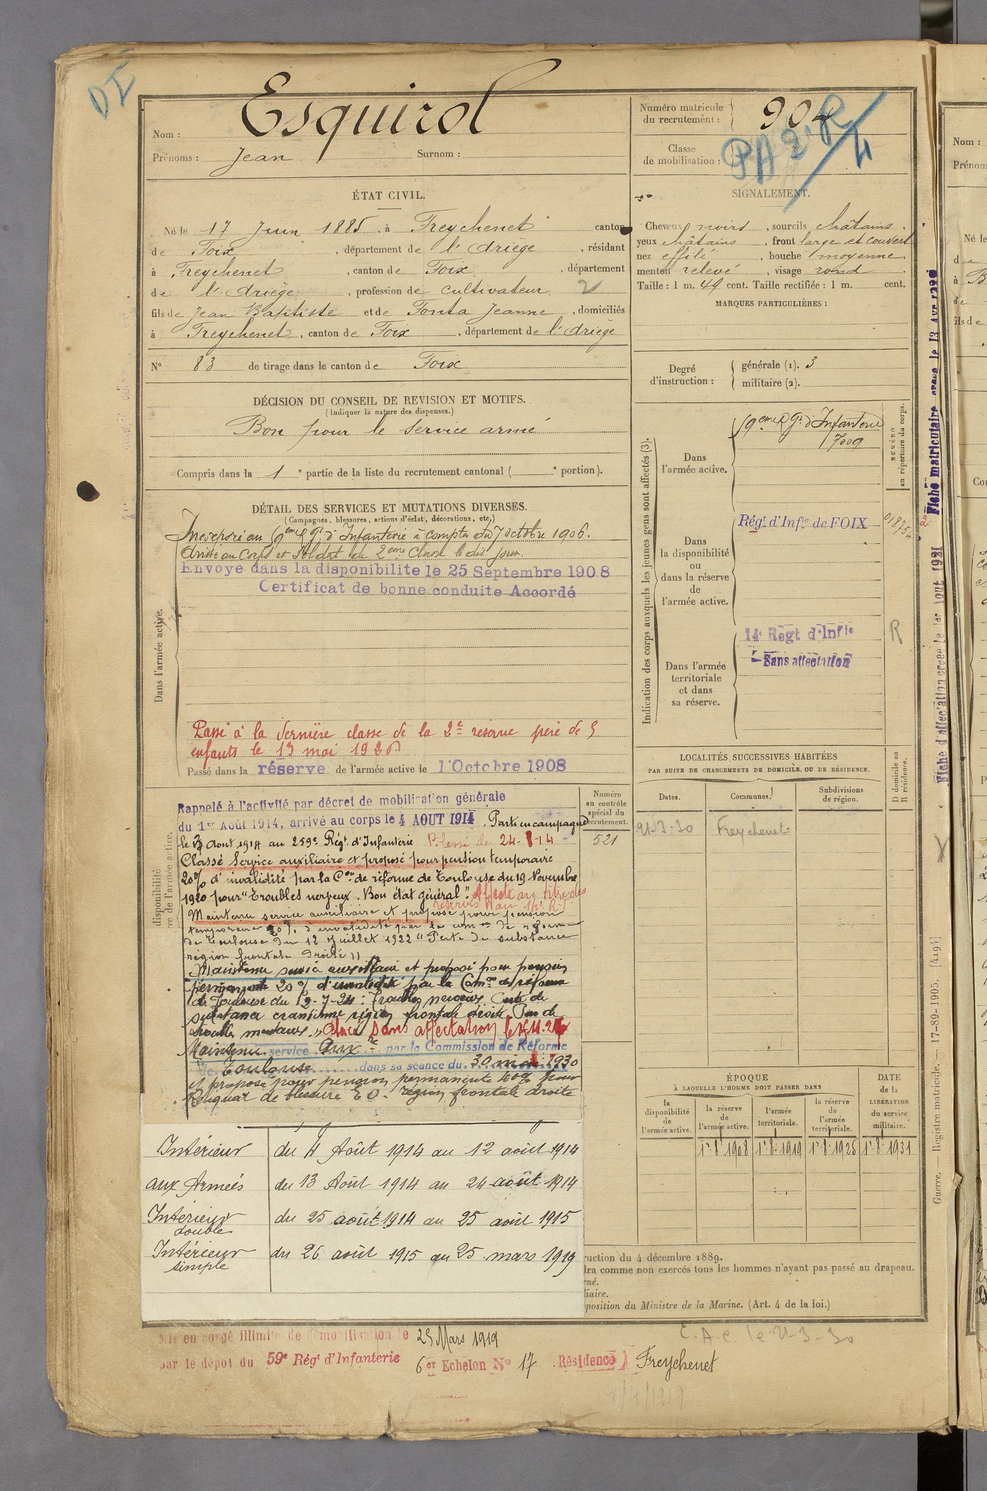 DI
Nom : Esquirol
Prénoms : Jean Surnom :
Numéro matricule du recrutement : 904
Classe de mobilisation :
PA 2e R 4
ÉTAT CIVIL.
Né le 17 Juin 1885, à Freychenet canton
de Foix, département de l'Ariège, résidant
à Freychenet, canton de Foix, département
de l'Ariège, profession de cultivateur 2
fils de Jean Baptiste et de Fonta Jeanne, domiciliés
à Freychenet, canton de Foix, département de l'Ariège
N° 83 de tirage dans le canton de Foix
SIGNALEMENT.
Cheveux noirs, sourcils châtains
yeux châtains, front large et couvert
nez effilé, bouche moyenne,
menton relevé, visage rond
Taille : 1 m. 49 cent. Taille rectifiée : 1 m. cent.
MARQUES PARTICULIÈRES :
Degré d'instruction : générale (1). 3
militaire (2).
DÉCISION DU CONSEIL DE REVISION ET MOTIFS.
(Indiquer la nature des dispenses.)
Bon pour le service armé
Compris dans la 1e partie de la liste du recrutement cantonal ( e portion).
DÉTAIL DES SERVICES ET MUTATIONS DIVERSES.
(Campagnes, blessures, actions d'éclat, décorations, etc.)
Dans l'armée active.
Incorporé au 9eme Rgt d'Infanterie à compter du 7 octobre 1906.
Arrivé au Corps et Soldat de 2eme Classe le dit jour.
Envoyé dans la disponibilite le 25 Septembre 1908
Certificat de bonne conduite Accordé
Passé à la dernière classe de la 2e réserve père de 5
enfants le 13 mai 192
Passé dans la réserve de l'armée active le 1 Octobre 1908
Rappelé à l'activité par décret de mobilisation générale
du 1er Août 1914, arrivé au corps le 4 AOUT 1914. Parti en campagne
le 13 Aout 1914 au 259e Régt d'Infanterie Blessé le 24-8-14
Classé Service auxiliaire et proposé pour pension temporaire
20% d'invalidité par la Con de réforme de Toulouse du 19 Novembre
1920 pour "Troubles nerveux. Bon état général". Affecté au titre des
réserves au 14e R.I.
Maintenu service auxiliaire et proposé pour pension
temporaire 20% d'invalidité par la comon de réforme
de Toulouse du 12 Juillet 1922 "Perte de substance
région frontale droite"
Maintenu service auxiliaire et proposé pour pension
permanente 20% d'invalidité par la Comon de réforme
de Toulouse du 12-7-24: Troubles nerveux Perte de
substance cranienne région frontale droite Pas de
trouble mentaux. Placé sans affectation le
Maintenu service Auxre par la Commission de Réforme
de Toulouse dans sa séance du 30 mai 1930
et proposé pour pension permanente 10% pour
Reliquat de blessure E.O. région frontale droite
Intérieur du 4 Août 1914 au 12 août 1914
aux Armées du 13 Août 1914 au 24 août 1914
Intérieur double du 25 août 1914 au 25 août 1915
Intérieur simple du 26 août 1915 au 25 mars 1919
Mis en congé illimité de démobilisation le 25 Mars 1919
par le dépot du 59e Régt d'Infanterie 6er Echelon N° 17 Résidence) Freychenet
Indication des corps auxquels les jeunes gens sont affectés (3).
NUMÉRO au répertoire du corps.
Dans l'armée active.
9eme Rgt d'Infanterie
7009
Dans la disponibilité ou dans la réserve de l'armée active.
Régt d'Infie de FOIX
Dans l'armée territoriale et dans sa réserve.
14e Regt d'Infie
Sans affectation
R
LOCALITÉS SUCCESSIVES HABITÉES
PAR SUITE DE CHANGEMENTS DE DOMICILE OU DE RÉSIDENCE.
D domicile ou R résidence.
Numéro au contrôle spécial du recrutement.
521
Dates. Communes. Subdivisions de région.
21-3-30 Freychenet
ÉPOQUE
À LAQUELLE L'HOMME DOIT PASSER DANS
DATE de la LIBÉRATION du service militaire.
la disponibilité de l'armée active.
la réserve de l'armée active.
l'armée territoriale.
la réserve de l'armée territoriale.
1er 8 1908 1er 8 1919 1er 8 1925 1er 8 1931
ruction du 4 décembre 1889.
dra comme non exercés tous les hommes n'ayant pas passé au drapeau.
né.
iaire.
position du Ministre de la Marine. (Art. 4 de la loi.)
C.A.C. le 21-3-30
Fiche matriculaire
Fiche d'affectation créée le 1er Aout 1921
Guerre. Registre matricule. 17-89-1905. [4494]
Nom :
Prénom
Né le